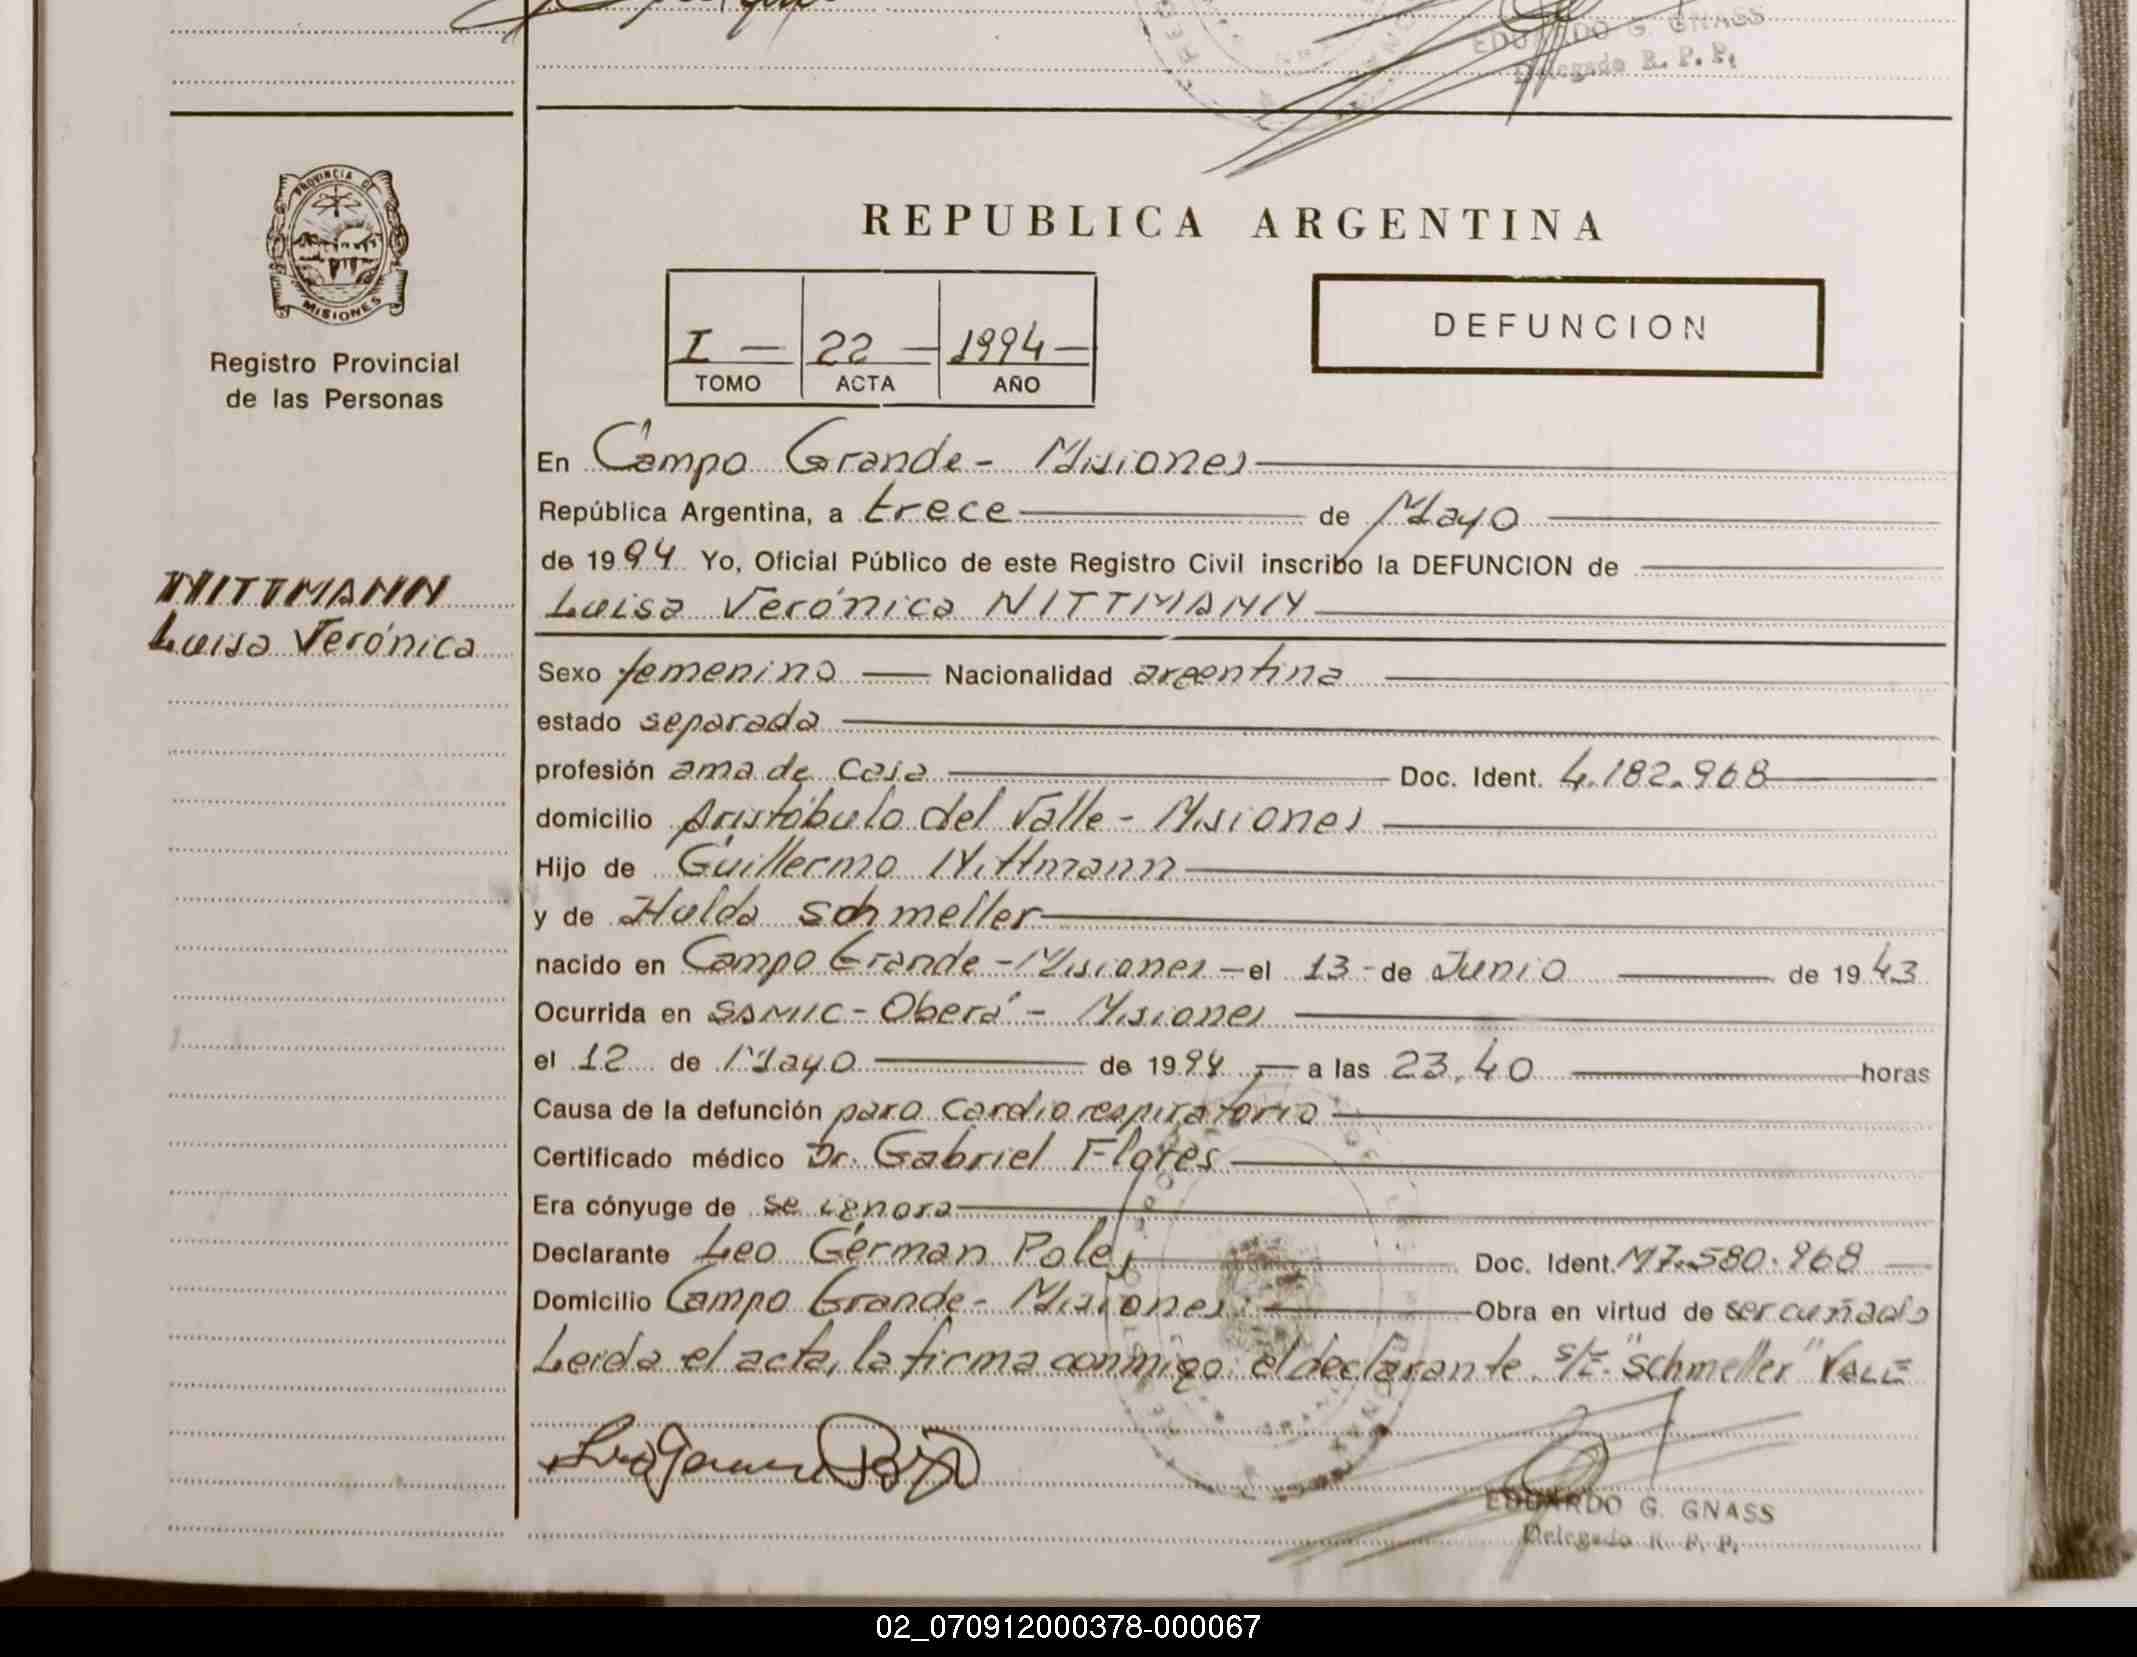 EDUARDO G. GNASS
Delegado R. P. P.
PROVINCIA DE
MISIONES
Registro Provincial
de las Personas
REPUBLICA ARGENTINA
I — 22 — 1994 —
TOMO ACTA AÑO
DEFUNCION
NITTMANN
Luisa Verónica
En Campo Grande - Misiones
República Argentina, a trece de Mayo
de 1994 Yo, Oficial Público de este Registro Civil inscribo la DEFUNCION de
Luisa Verónica NITTMANN
Sexo femenino Nacionalidad argentina
estado separada
profesión ama de casa Doc. Ident. 4.182.968
domicilio Aristóbulo del Valle - Misiones
Hijo de Guillermo Nittmann
y de Hulda Schmeller
nacido en Campo Grande - Misiones - el 13 - de Junio de 1943
Ocurrida en SAMIC - Oberá - Misiones
el 12 de Mayo de 1994 a las 23,40 horas
Causa de la defunción paro cardiorespiratorio
Certificado médico Dr. Gabriel Flores
Era cónyuge de se ignora
Declarante Leo Germán Doc. Ident. M7.580.968
Domicilio Campo Grande - Misiones Obra en virtud de ser cuñado
Leída el acta, la firma conmigo el declarante. s/E. "Schmeller" VALE
EDUARDO G. GNASS
Delegado R. P. P.
02_070912000378-000067